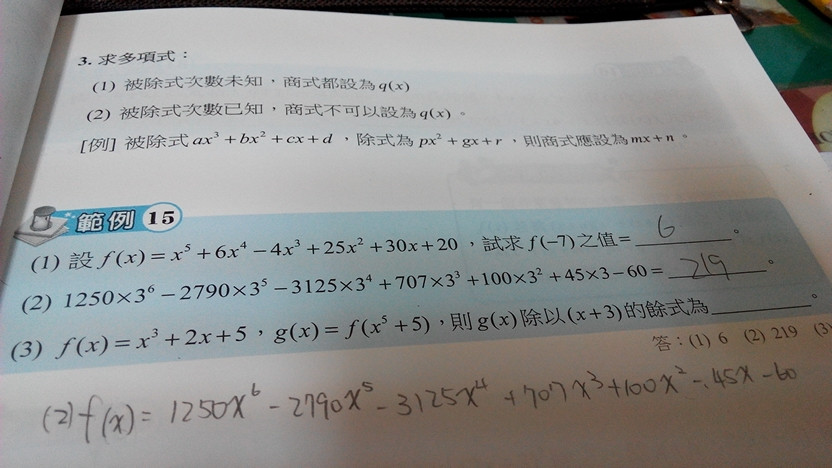 3. 求多項式：
(1) 被除式次數未知，商式都設為q(x)
(2) 被除式次數已知，商式不可以設為q(x)。
[例] 被除式ax³+bx²+cx+d，除式為px²+gx+r，則商式應設為mx+n。
範例 15
(1) 設f(x)=x⁵+6x⁴−4x³+25x²+30x+20，試求f(−7)之值=6。
(2) 1250×3⁶−2790×3⁵−3125×3⁴+707×3³+100×3²+45×3−60=219。
(3) f(x)=x³+2x+5，g(x)=f(x⁵+5)，則g(x)除以(x+3)的餘式為______。
答：(1) 6 (2) 219 (3)
(2) f(x)= 1250x⁶−2790x⁵−3125x⁴+707x³+100x²-45x−60